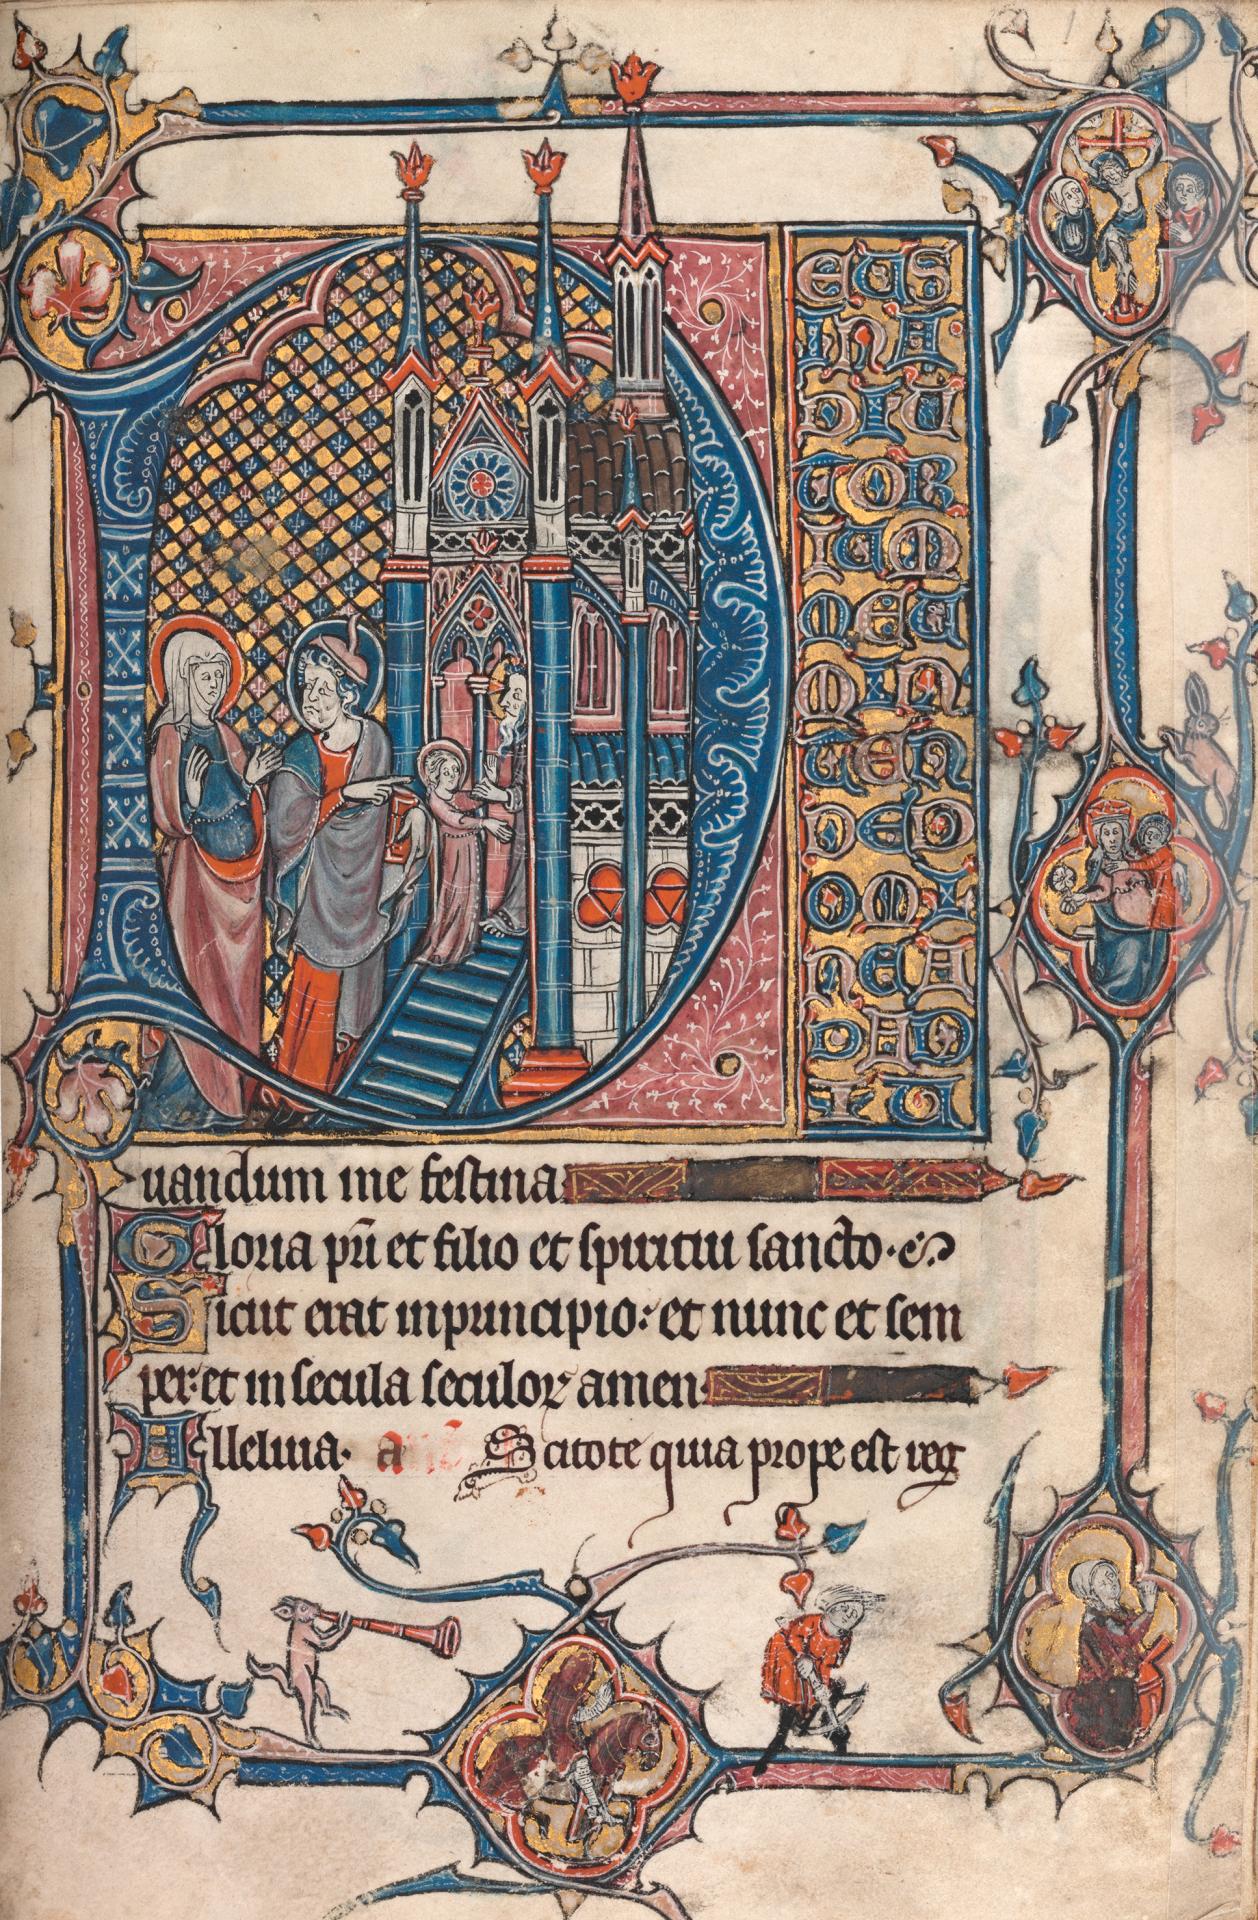 D
EUS
IN A
DIU
TOR
IUM
MEU
M IN
TEN
DE D
OMI
NE A
D AD
IU
uandum me festina
Gloria pr̄i et filio et spiritui sancto.
Sicut erat in principio: et nunc et sem
per: et in secula seculoꝝ amen.
Alleluia. a Scitote quia prope est reg